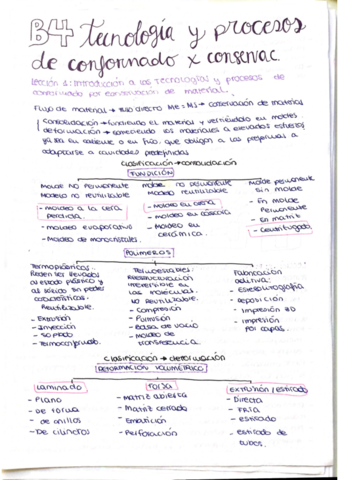 B4 tecnología y procesos
de conformado x conservac.
Lección 1: Introducción a las tecnologías y procesos de
conformado por conservación de material.
Flujo de material → flujo directo ME = MS → conservación de material
Consolidación → fundiendo el material y vertiéndolo en moldes
deformación → sometiendo los materiales a elevados esfuerzos
ya sea en caliente o en frío que obligan a las preformas a
adaptarse a cavidades predefinidas
clasificación → consolidación
FUNDICIÓN
Molde No Permanente
Modelo no reutilizable
- moldeo a la cera
perdida
- moldeo evaporativo
- Moldeo de monocristales.
molde no permanente
Modelo reutilizable
- Moldeo en arena
- moldeo en cáscara
- Moldeo en
cerámica.
Molde permanente
sin molde
- En molde
Permanente
- En matriz
- Centrifugado
POLÍMEROS
Termoplásticos.
Pueden ser llevados
al estado plástico y
al sólido sin perder
características.
Reutilizable.
- Extrusión
- Inyección
- Soplado
- Termoconformado.
Termoestables:
Reestructuración
irreversible en
las moléculas.
NO Reutilizable.
- Compresión
- Pultrusión
- Bolsa de vacío
- Moldeo de
transferencia.
Fabricación
aditiva:
- Estereolitografía
- deposición
- Impresión 3D
- Impresión
por capas.
Clasificación → deformación
DEFORMACIÓN VOLUMÉTRICA
Laminado
- Plano
- De forma
- de anillos
- De cilindros
FORJA
- Matriz abierta
- Matriz cerrada
- Embutición
- Perforación
EXTRUSIÓN / estirado
- Directa
- FRÍA
- estirado
- estirado de
tubos.